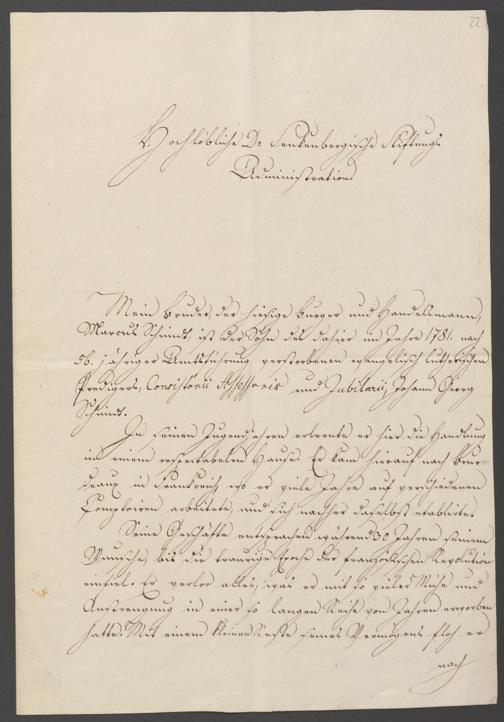 22
Hochlöbliche Dr. Senkenbergische Stiftungs
Administration!
Mein Bruder, der hiesige Burger und Handelsmann,
Marcus Schmidt, ist der Sohn des dahier im Jahre 1781. nach
56. jähriger Amtsführung verstorbenen evangelisch lutherischen
Predigers, Consistorii Assessoris und Jubilarii, Johann Georg
Schmidt.
In seinen Jugendjahren erlernte er hier die Handlung
in einem respectabelen Hause. Er kam hierauf nach Bour-
deaux in Frankreich, wo er viele Jahre auf verschiedenen
Comptoiren arbeitete, und sich nachher daselbst etablirte.
Seine Geschäfte entsprachen während 30 Jahren seinem
Wunsche, bis die traurige Epoche der französischen Revolution
einfiel. Er verlor alles, was er mit so vieler Mühe und
Anstrengung in einer so langen Reihe von Jahren erworben
hatte. Mit einem kleinen Reste seines Vermögens floh er
nach